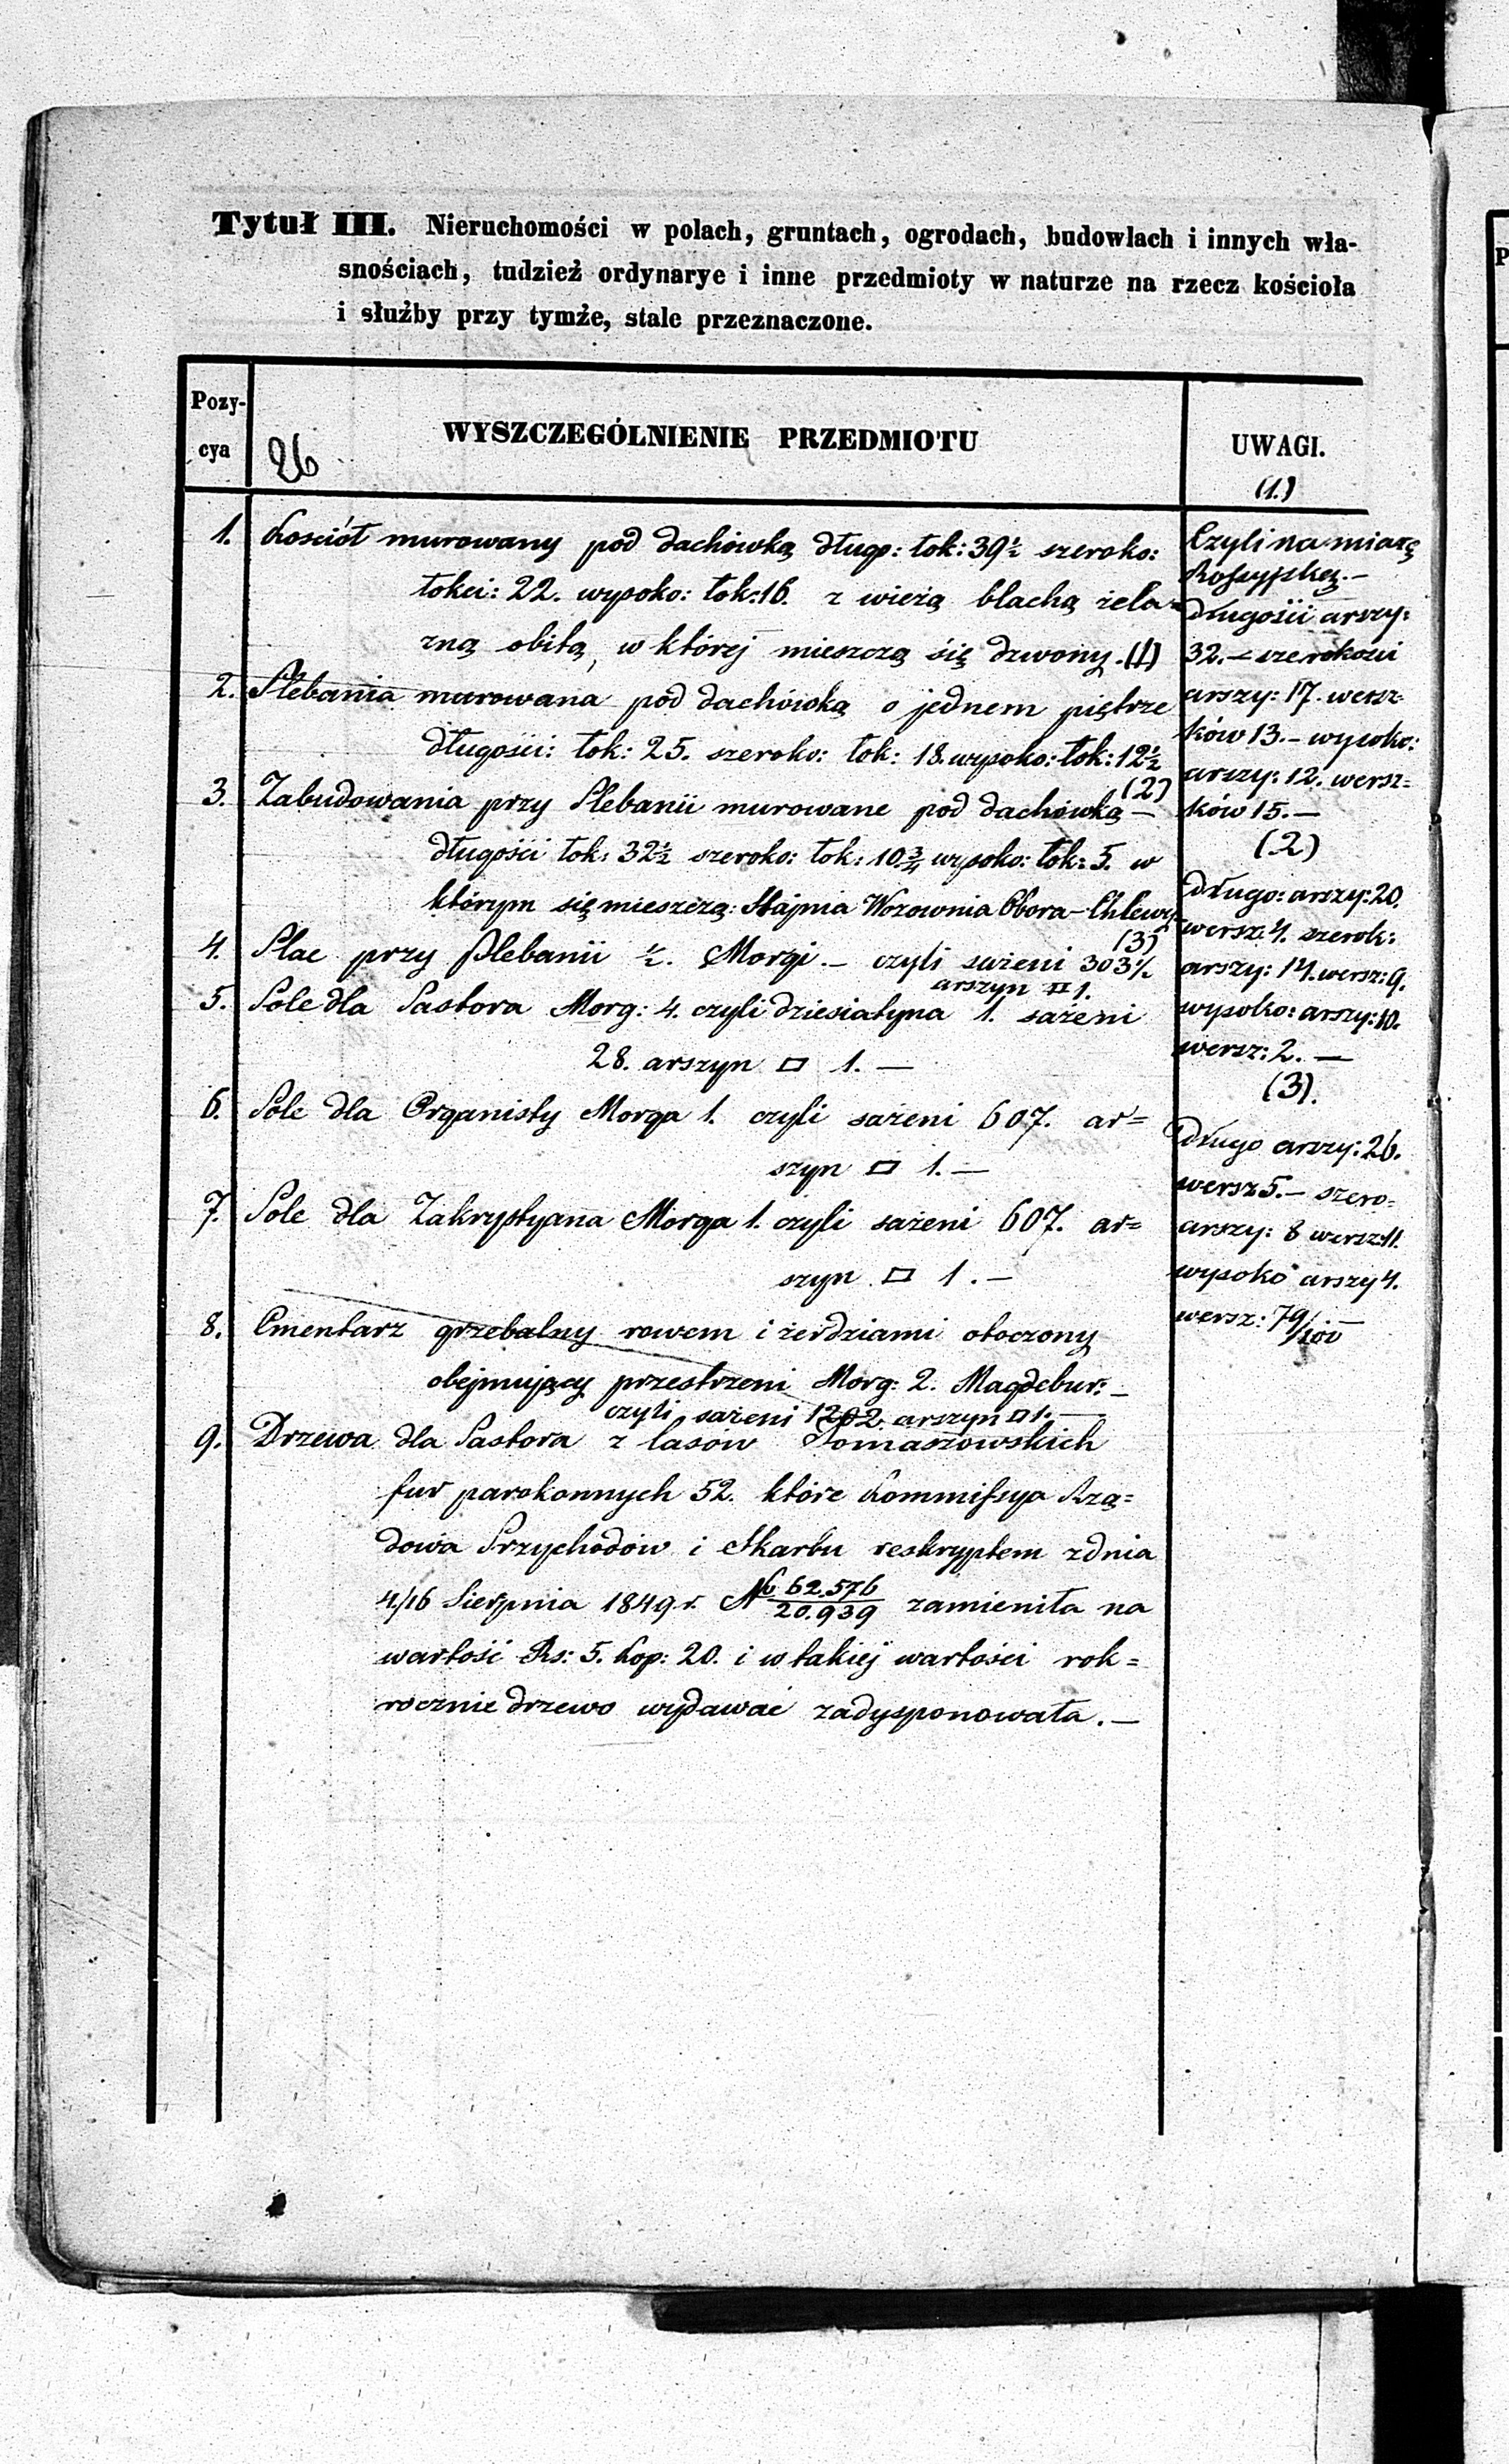 Tytuł III. Nieruchomości w polach, gruntach, ogrodach, budowlach i innych wła-
snościach, tudzież ordynarye i inne przedmioty w naturze na rzecz kościoła
i służby przy tymże, stale przeznaczone.
Pozy-
cya
26
WYSZCZEGÓLNIENIE PRZEDMIOTU
UWAGI.
1. Kościół murowany pod dachówką długo: łok: 39½ szeroko:
łokci: 22. wysoko: łok: 16. z wieżą blachą żela=
zną obitą, w której mieszczą się dzwony. (1)
2. Plebania murowana pod dachówką o jednem piętrze
długości: łok: 25. szeroko: łok: 18. wysoko: łok: 12½
(2)
3. Zabudowania przy Plebanii murowane pod dachówką —
długości łok: 32½ szeroko: łok: 10¾ wysoko: łok: 5. w
którym się mieszczą: Stajnia Wozownia Obora – Chlewy
(3)
4. Plac przy Plebanii ½. Morgi. – czyli sążeni 303½
arszyn □ 1.
5. Pole dla Pastora Morg: 4. czyli dziesiatyna 1. sażeni
28. arszyn □ 1. —
6. Pole dla Organisty Morga 1. czyli sażeni 607. ar=
szyn □ 1. —
7. Pole dla Zakrystyana Morga 1. czyli sażeni 607. ar=
szyn □ 1. —
8. Cmentarz grzebalny rowem i żerdziami otoczony
obejmujący przestrzeni Morg: 2. Magdebur: —
czyli sażeni 1202 arszyn □ 1. —
9. Drzewa dla Pastora z lasów Tomaszowskich
fur parokonnych 52. które Kommissya Rzą=
dowa Przychodów i Skarbu reskryptem z dnia
4/16 Sierpnia 1849 r. No 62.576/20.939 zamieniła na
wartość Rs: 5. Kop: 20. i w takiej wartości rok=
rocznie drzewo wydawać zadysponowała. —
(1.)
Czyli na miarę
Rossyjską. —
długości arszy:
32. – szerokości
arszy: 17. wersz=
ków 13. – wysoko:
arszy: 12. wersz=
ków 15. —
(2)
Długo: arszy: 20.
wersz: 4. szerok:
arszy: 14. wersz: 9.
wysoko: arszy: 10.
wersz: 2. —
(3).
Długo arszy: 26.
wersz 5. – szero=
arszy: 8 wersz: 11.
wysoko arszy 4.
wersz: 79/100 —